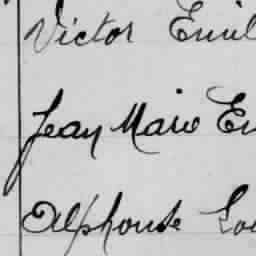 Victor Emil
Jean Marie Em
Alphonse Lou